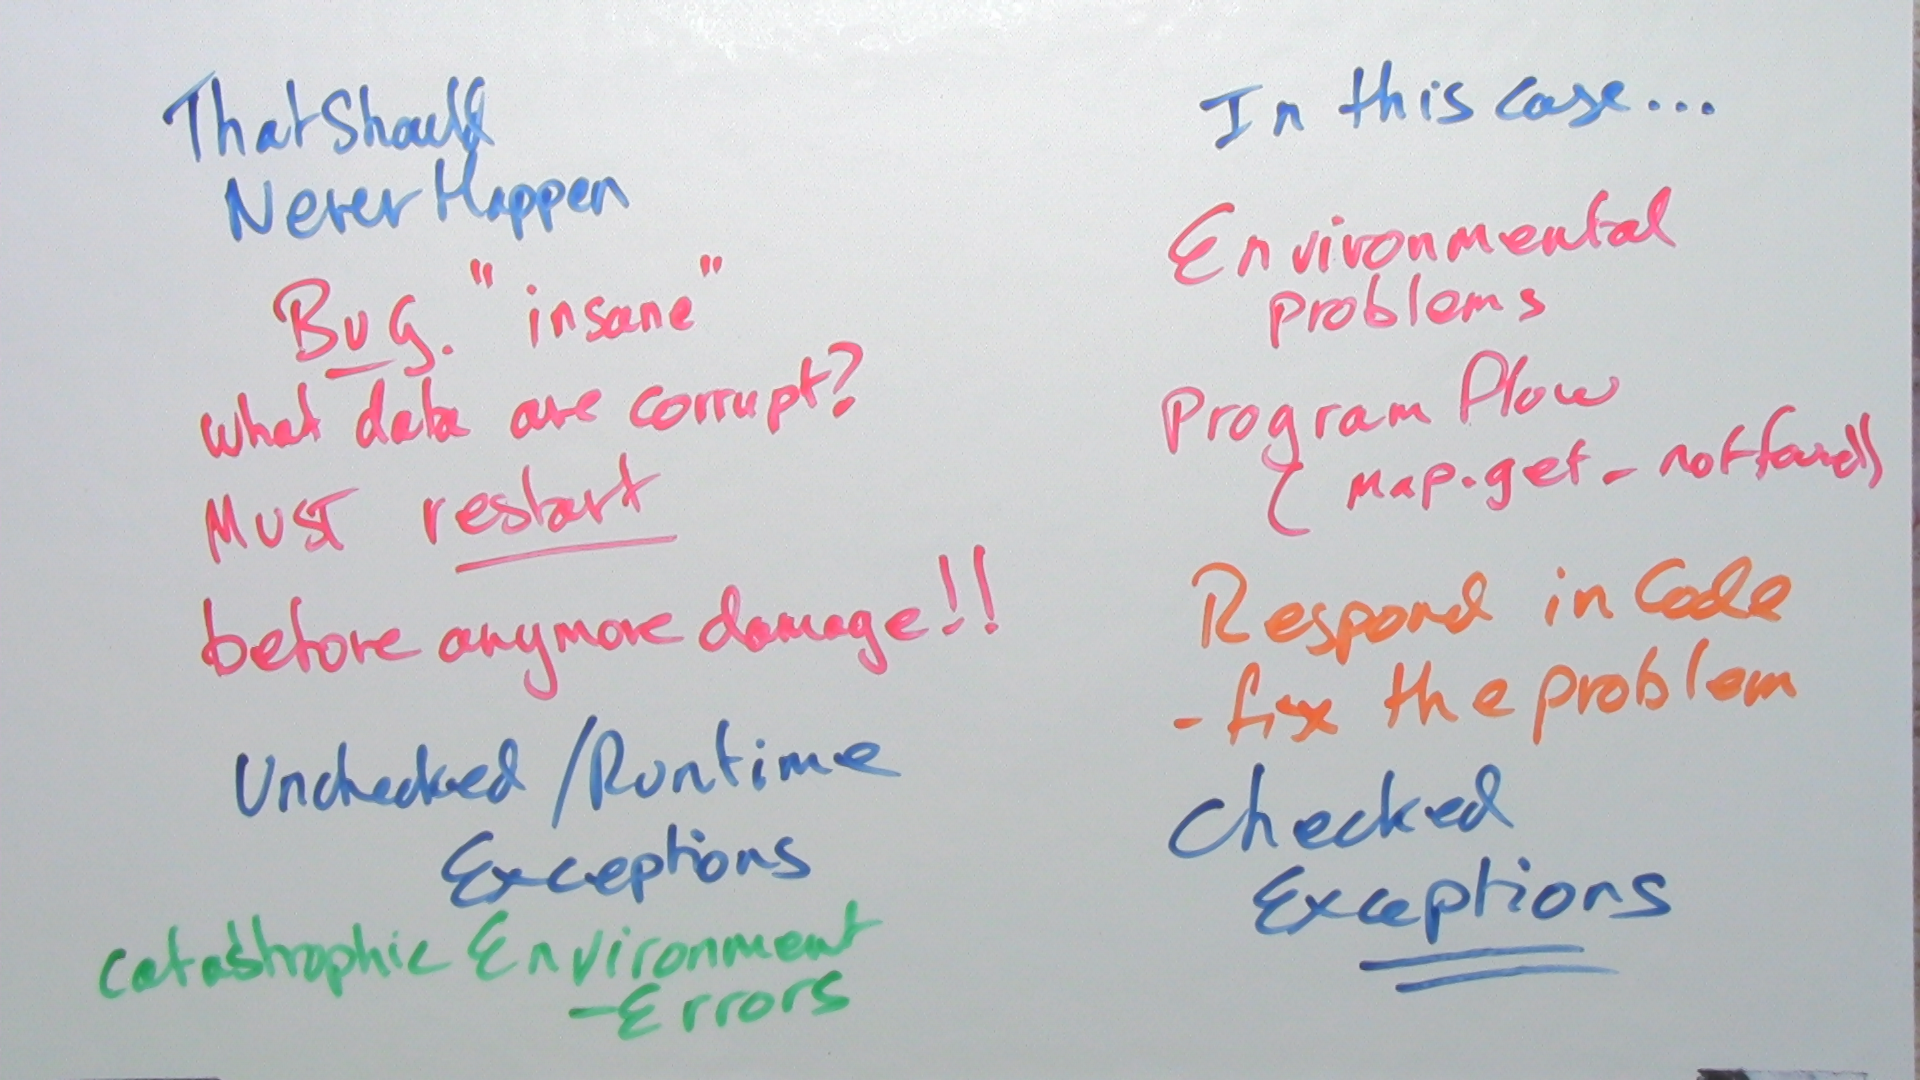 That Should
Never Happen
Bug. "insane"
what data are corrupt?
Must restart
before anymore damage!!
Unchecked / Runtime
Exceptions
catastrophic Environment
- Errors
In this case...
Environmental
problems
Program flow
( map.get - not found)
Respond in Code
- fix the problem
Checked
Exceptions